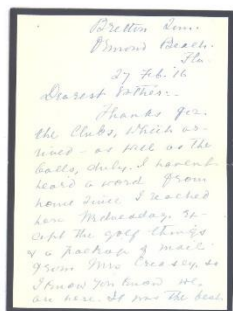 Bretton Inn
Ormond Beach
Fla.
27 Feb. '16
Dearest Esther:-
Thanks for
the clubs, which ar-
rived - as well as the
balls, duly. I haven't
heard a word from
home since I reached
here Wednesday ex-
cept the golf things
& a package of mail
from Mrs Creasey, so
I know you know we
are here. It was the best